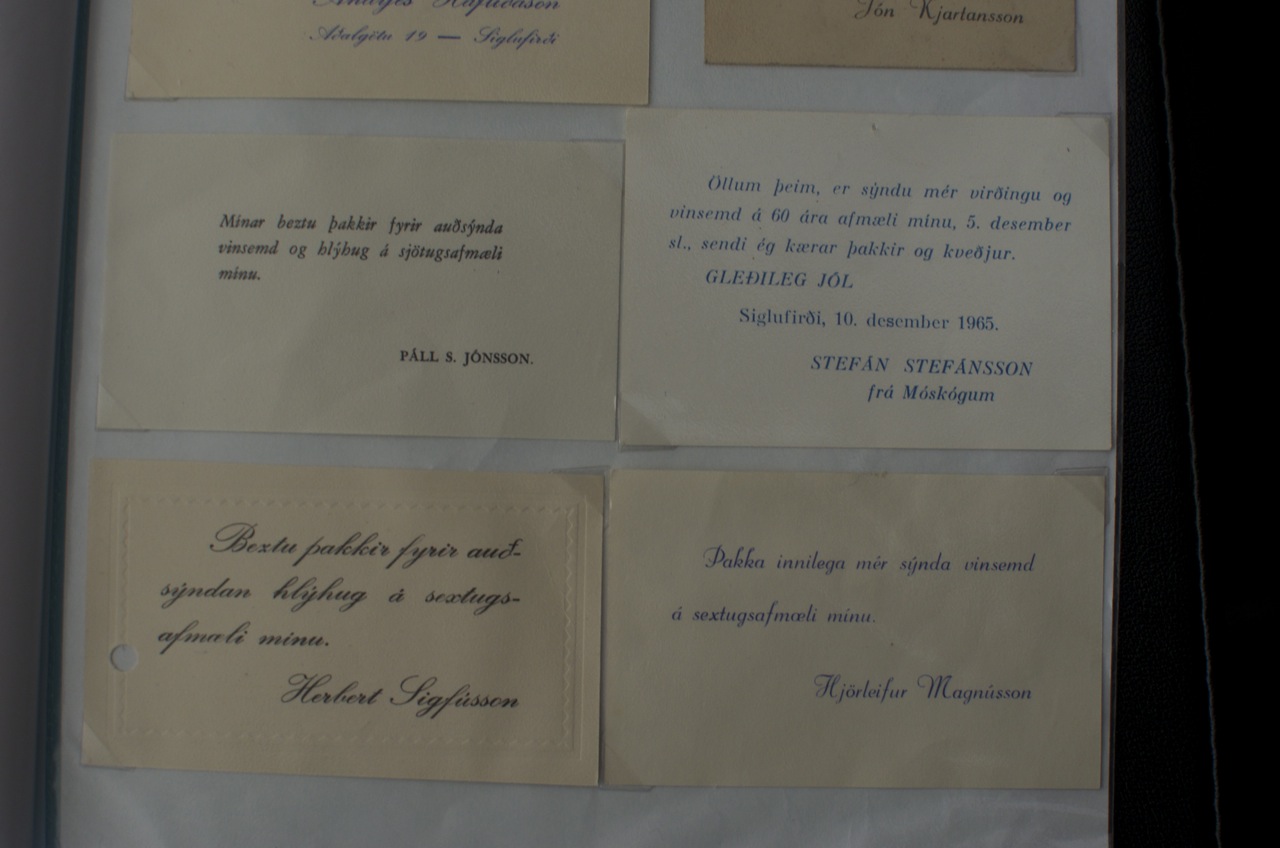 Hafliðason
Aðalgötu 19 — Siglufirði
Jón Kjartansson
Mínar beztu þakkir fyrir auðsýnda
vinsemd og hlýhug á sjötugsafmæli
mínu.
PÁLL S. JÓNSSON.
Öllum þeim, er sýndu mér virðingu og
vinsemd á 60 ára afmæli mínu, 5. desember
sl., sendi ég kærar þakkir og kveðjur.
GLEÐILEG JÓL
Siglufirði, 10. desember 1965.
STEFÁN STEFÁNSSON
frá Móskógum
Beztu þakkir fyrir auð-
sýndan hlýhug á sextugs-
afmæli mínu.
Herbert Sigfússon
Þakka innilega mér sýnda vinsemd
á sextugsafmæli mínu.
Hjörleifur Magnússon